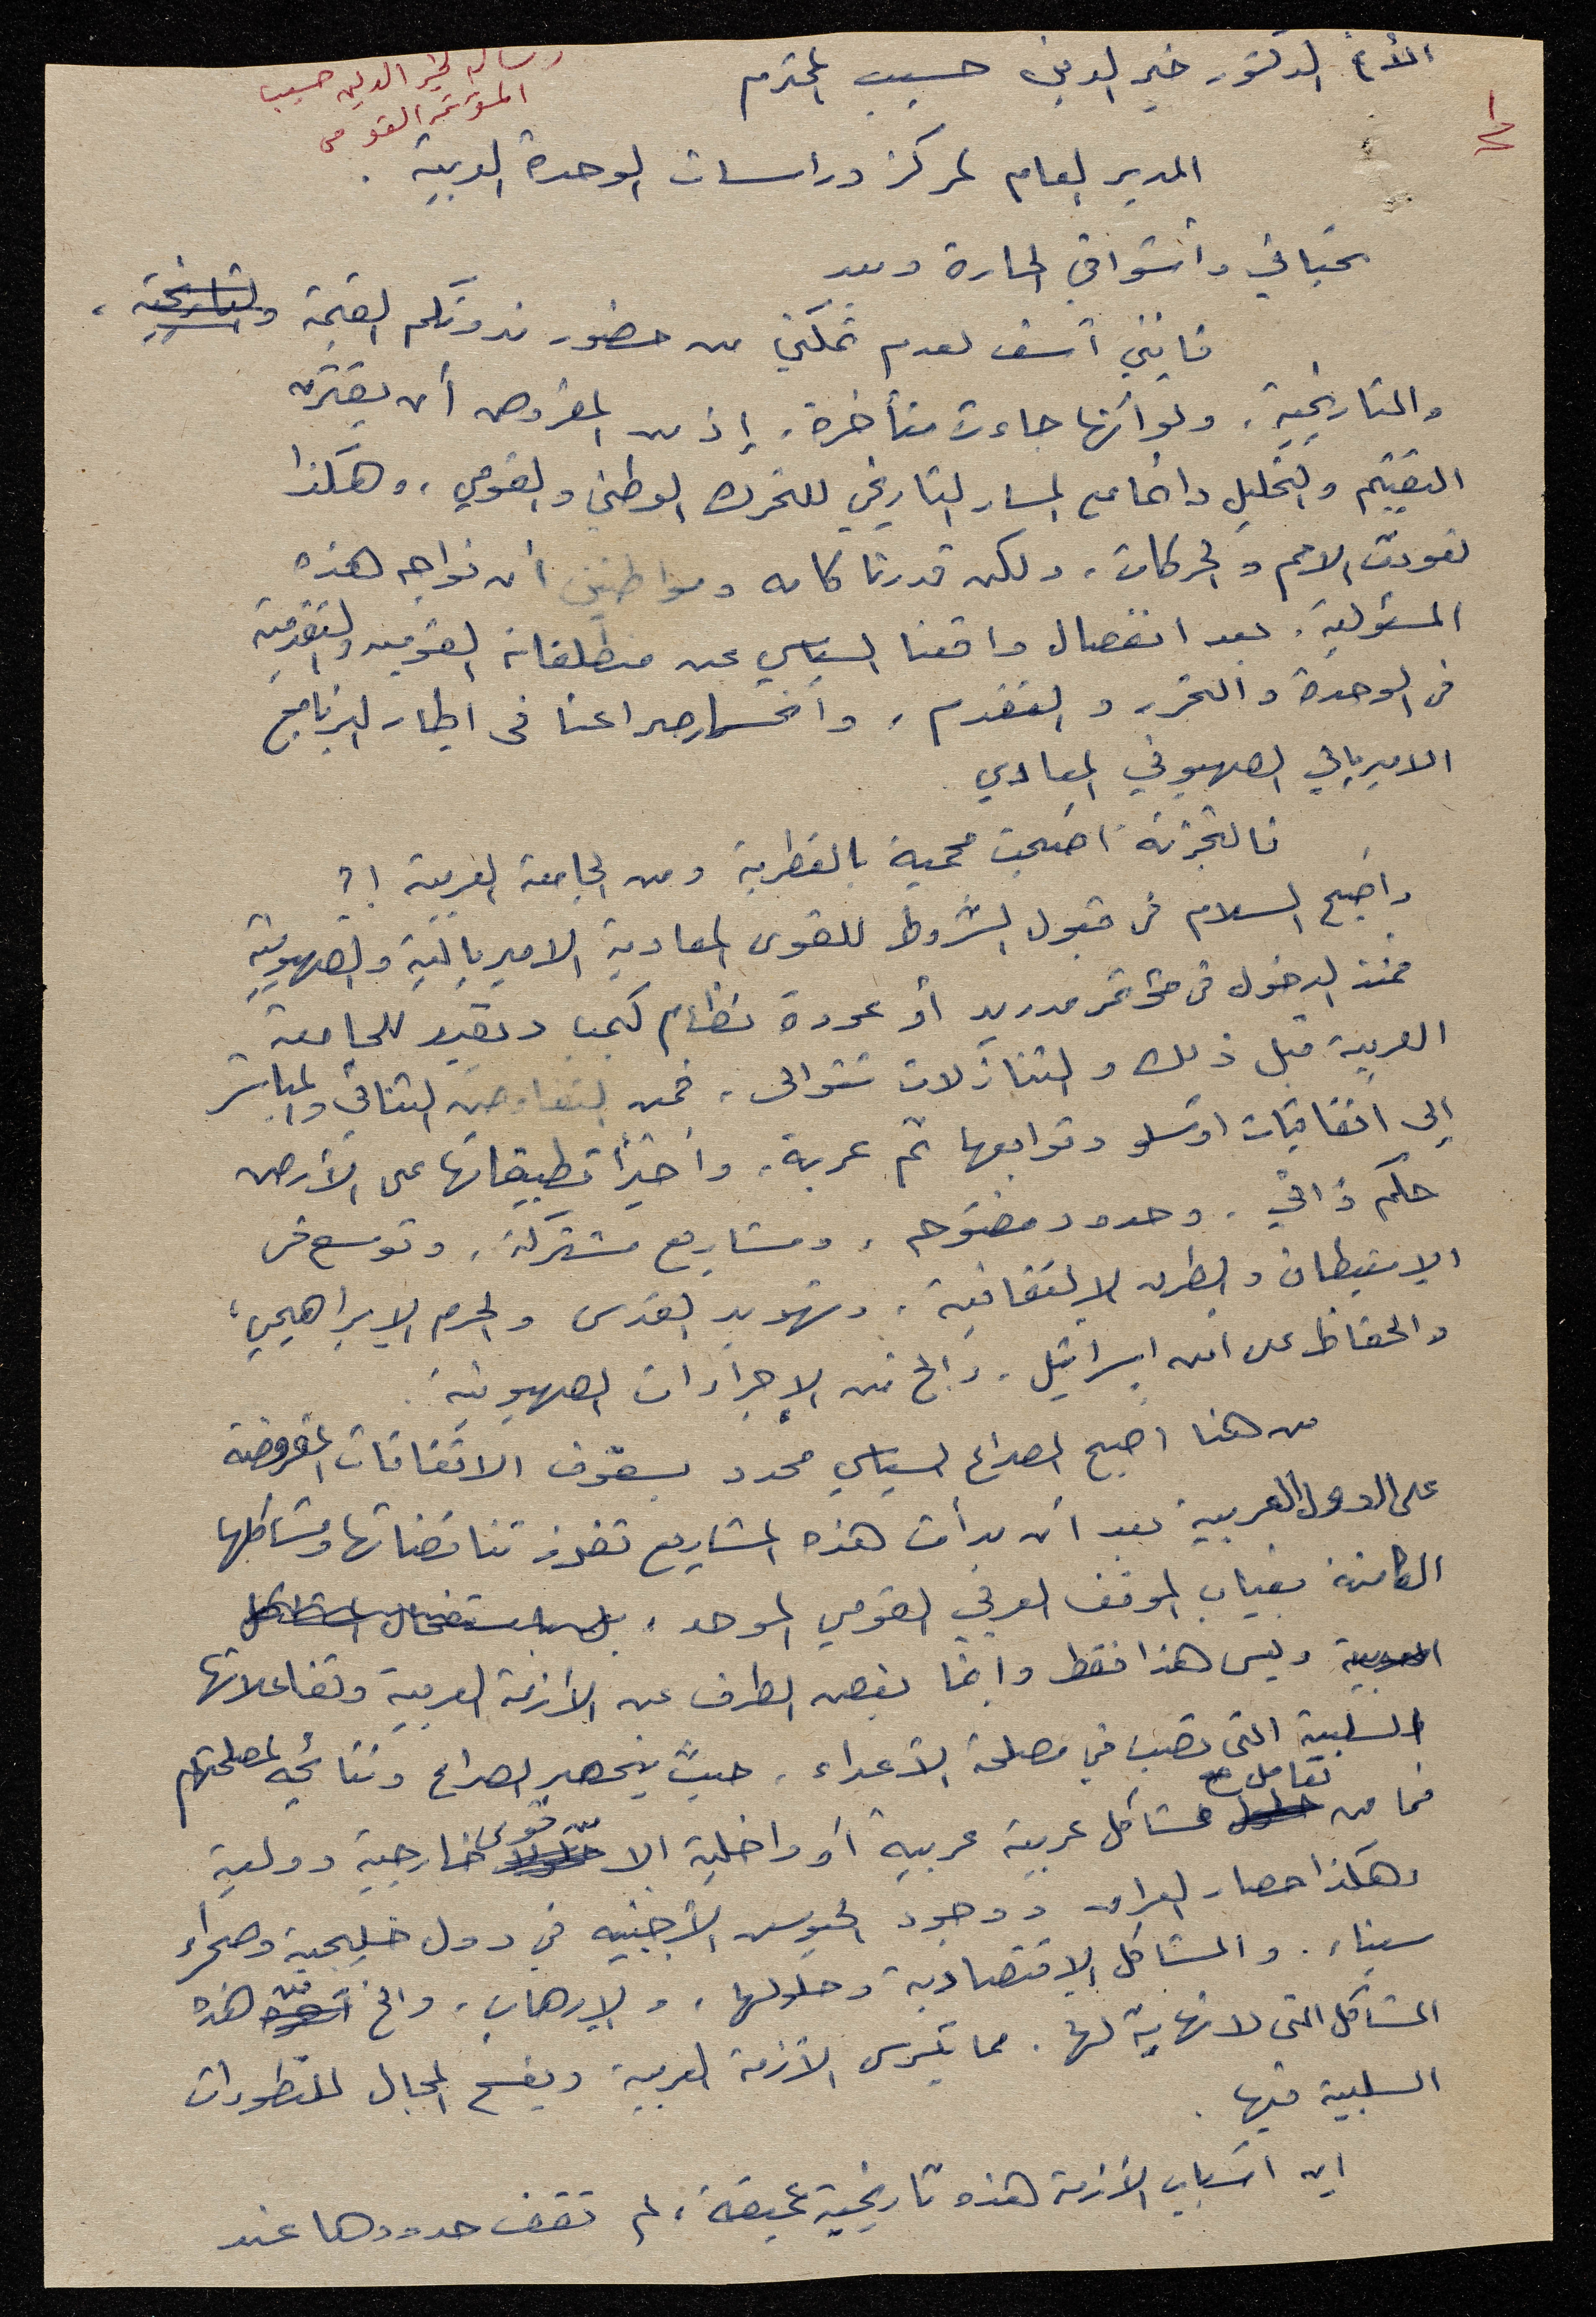 رسالة لخير الدين حسيب
المؤتمر القومي
الأخ الدكتور خير الدين حسيب المحترم
المدير العام لمركز دراسات الوحدة العربية .
تحياتي وأشواقي الحارة وبعد
فإنني آسف لعدم تمكني من حضور ندوتكم القيمة والتاريخية ،
والتاريخية ، ولو أنها جاءت متأخرة ، إذ من المفروض أن يقترن
التقييم والتحليل دائما مع المسار التاريخي للتحرك الوطني والقومي ، وهكذا
تعودت الامم والحركات ، ولكن قدرنا كامة ومواطنين أن نواجه هذه
المسئولية ، بعد انفصال واقعنا السياسي عن منطلقاته القومية والتقدمية
في الوحدة والتحرر والتقدم ، وانحسار صراعنا في اطار البرنامج
الامبريالي الصهيوني المعادي
فالتجزئة اضحت محمية بالقطرية ومن الجامعة العربية !؟
واصبح السلام في قبول الشروط للقوى المعادية الامبريالية والصهيونية
فمنذ الدخول في مؤتمر مدريد أو عودة نظام كمب ديفيد للجامعة
العربية قبل ذلك والتنازلات تتوالى ، فمن التفاوض الثنائي والمباشر
إلى اتفاقيات اوسلو وتوابعها ثم عربة ، وأخيراً تطبيقاتها على الأرض
حكم ذاتي ، وحدود مفتوحة ، ومشاريع مشتركة ، وتوسع في
الاستيطان والطرق الالتفافية ، وتهويد القدس والحرم الابراهيمي ،
والحفاظ على امن اسرائيل ، والخ من الإجراءات الصهيونية .
من هنا اصبح الصراع السياسي محدد بسقوف الاتفاقات المفروضة
على الدول العربية بعد أن بدأت هذه المشاريع تفرز تناقضاتها ومشاكلها
الكامنة بغياب الموقف العربي القومي الموحد ، بل باستفحال المشاكل
العربية وليس هذا فقط وانما بغض الطرف عن الأزمة العربية وتفاعلاتها
السلبية التي تصب في مصلحة الأعداء ، حيث ينحصر الصراع ونتائجه لمصلحتهم
تعامل مع
فما من حلول مشاكل عربية عربية أو داخلية الا من قوى خارجية دولية
وهكذا حصار العراق ووجود الجيوش الأجنبية في دول خليجية وصحراء
سيناء . والمشاكل الاقتصادية وحلولها ، والإرهاب ، والخ من هذه
المشاكل التي لا نهاية لها . مما يكرس الأزمة العربية ويفسح المجال للتطورات
السلبية فيها .
ان اسباب الأزمة هذه تاريخية عميقة ، لم تقف حدودها عند